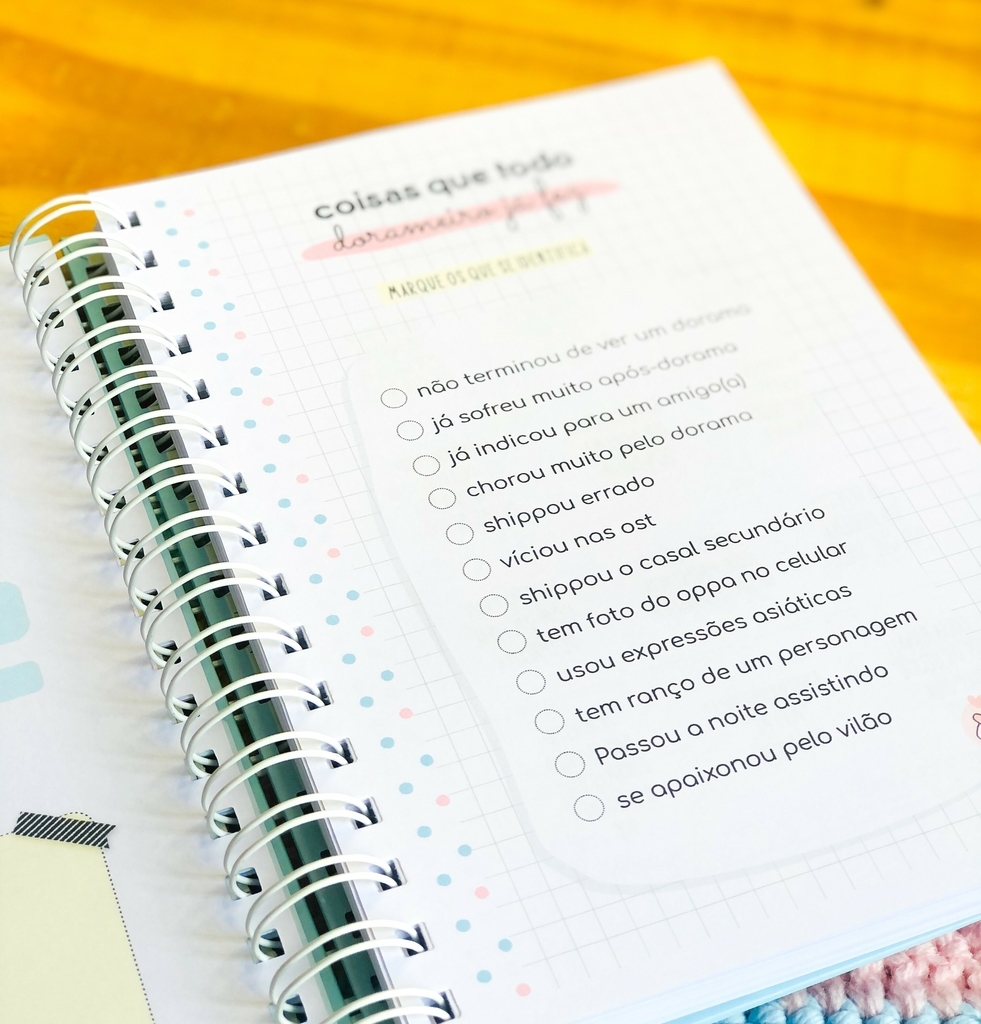 coisas que todo
dorameiro já fez
MARQUE OS QUE SE IDENTIFICA
não terminou de ver um dorama
já sofreu muito após-dorama
já indicou para um amigo(a)
chorou muito pelo dorama
shippou errado
víciou nas ost
shippou o casal secundário
tem foto do oppa no celular
usou expressões asiáticas
tem ranço de um personagem
Passou a noite assistindo
se apaixonou pelo vilão